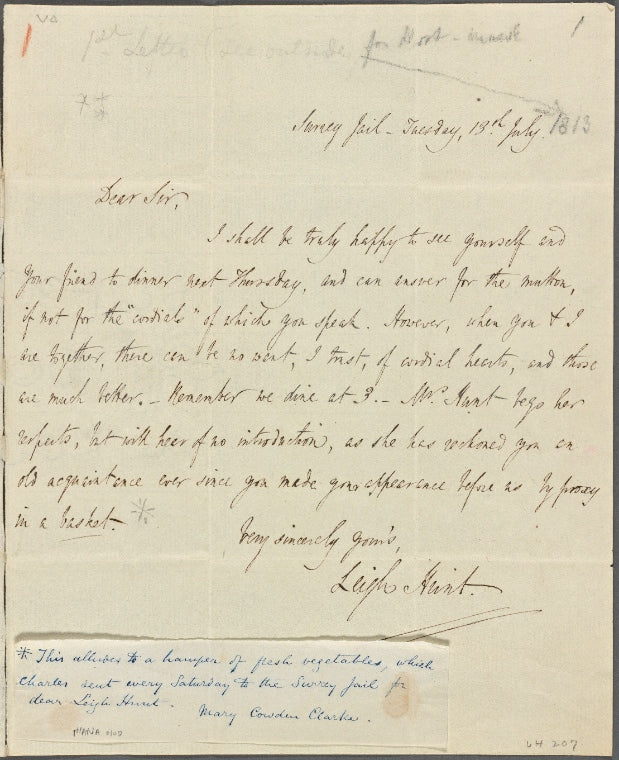 1
VA
1st Letter (see outside) for Foot-note
1
*
Surrey Jail – Tuesday, 13th July. 1813
Dear Sir,
I shall be truly happy to see yourself and
your friend to dinner next Thursday, and can answer for the mutton,
if not for the "cordials" of which you speak. However, when you & I
are together, there can be no want, I trust, of cordial hearts, and those
are much better. – Remember we dine at 3. – Mrs. Hunt begs her
respects, but will hear of no introduction, as she has reckoned you an
old acquaintance ever since you made your appearance before us by proxy
in a basket. *
Very sincerely your's,
Leigh Hunt.
* This alludes to a hamper of fresh vegetables, which
Charles sent every Saturday to the Surrey Jail for
dear Leigh Hunt. Mary Cowden Clarke.
LH 207